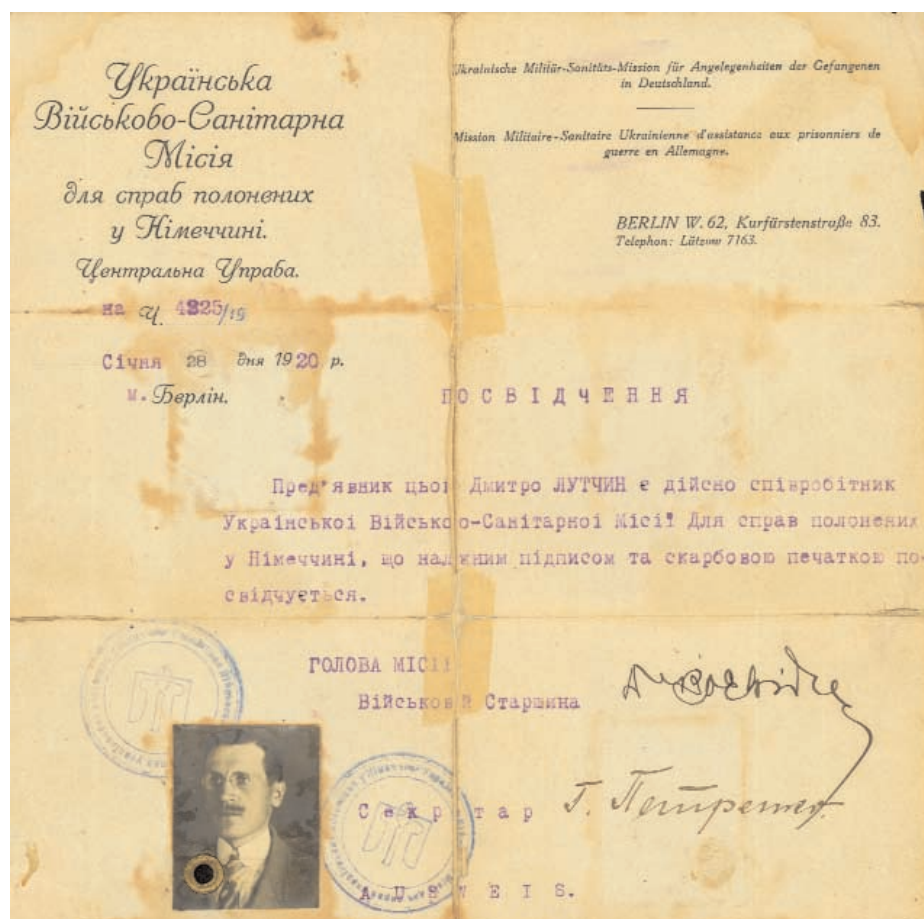 Українська
Військово-Санітарна
Місія
для справ полонених
у Німеччині.
Центральна Управа.
на Ч. 4325/19
Січня 28 дня 1920 р.
м. Берлін.
Ukrainische Militär-Sanitäts-Mission für Angelegenheiten der Gefangenen
in Deutschland.
Mission Militaire-Sanitaire Ukrainienne d'assistance aux prisonniers de
guerre en Allemagne.
BERLIN W. 62, Kurfürstenstraße 83.
Telephon: Lützow 7163.
ПОСВІДЧЕННЯ
Пред'явник цьоі Дмитро ЛУТЧИН є дійсно співробітник
Українськоі Військово-Санітарноі Місіі Для справ полонених
у Німеччині, що належним підписом та скарбовою печаткою по-
свідчується.
ГОЛОВА МІСІІ
Військовий Старшина
Секретар Г. Петренко
AUSWEIS.